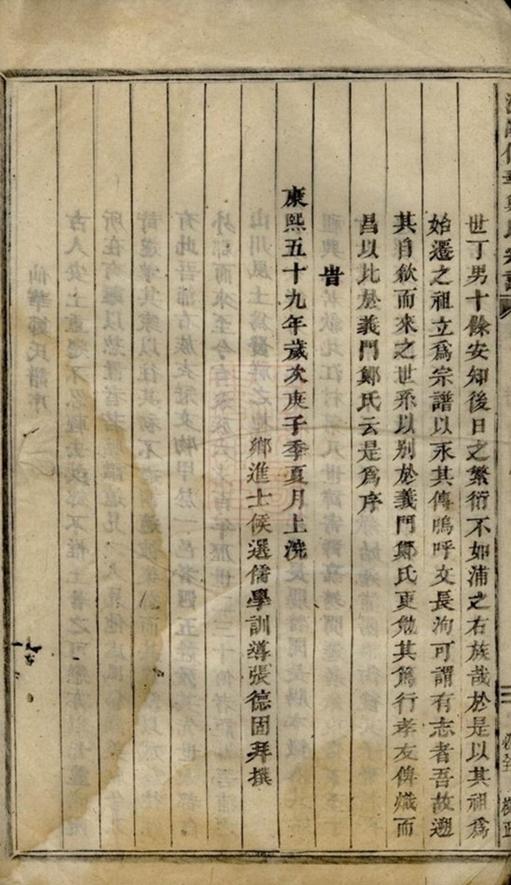 世丁男十餘安知後日之繁衍不如浦之右族哉於是以其祖爲
始遷之祖立爲宗譜以永其傳嗚呼文長洵可謂有志者吾故遡
其自歙而來之世系以別於義門鄭氏更勉其篤行孝友俾熾而
昌以比於義門鄭氏云是爲序
旹
康熙五十九年歲次庚子季夏月上浣
鄉進士候選儒學訓導張德固拜撰